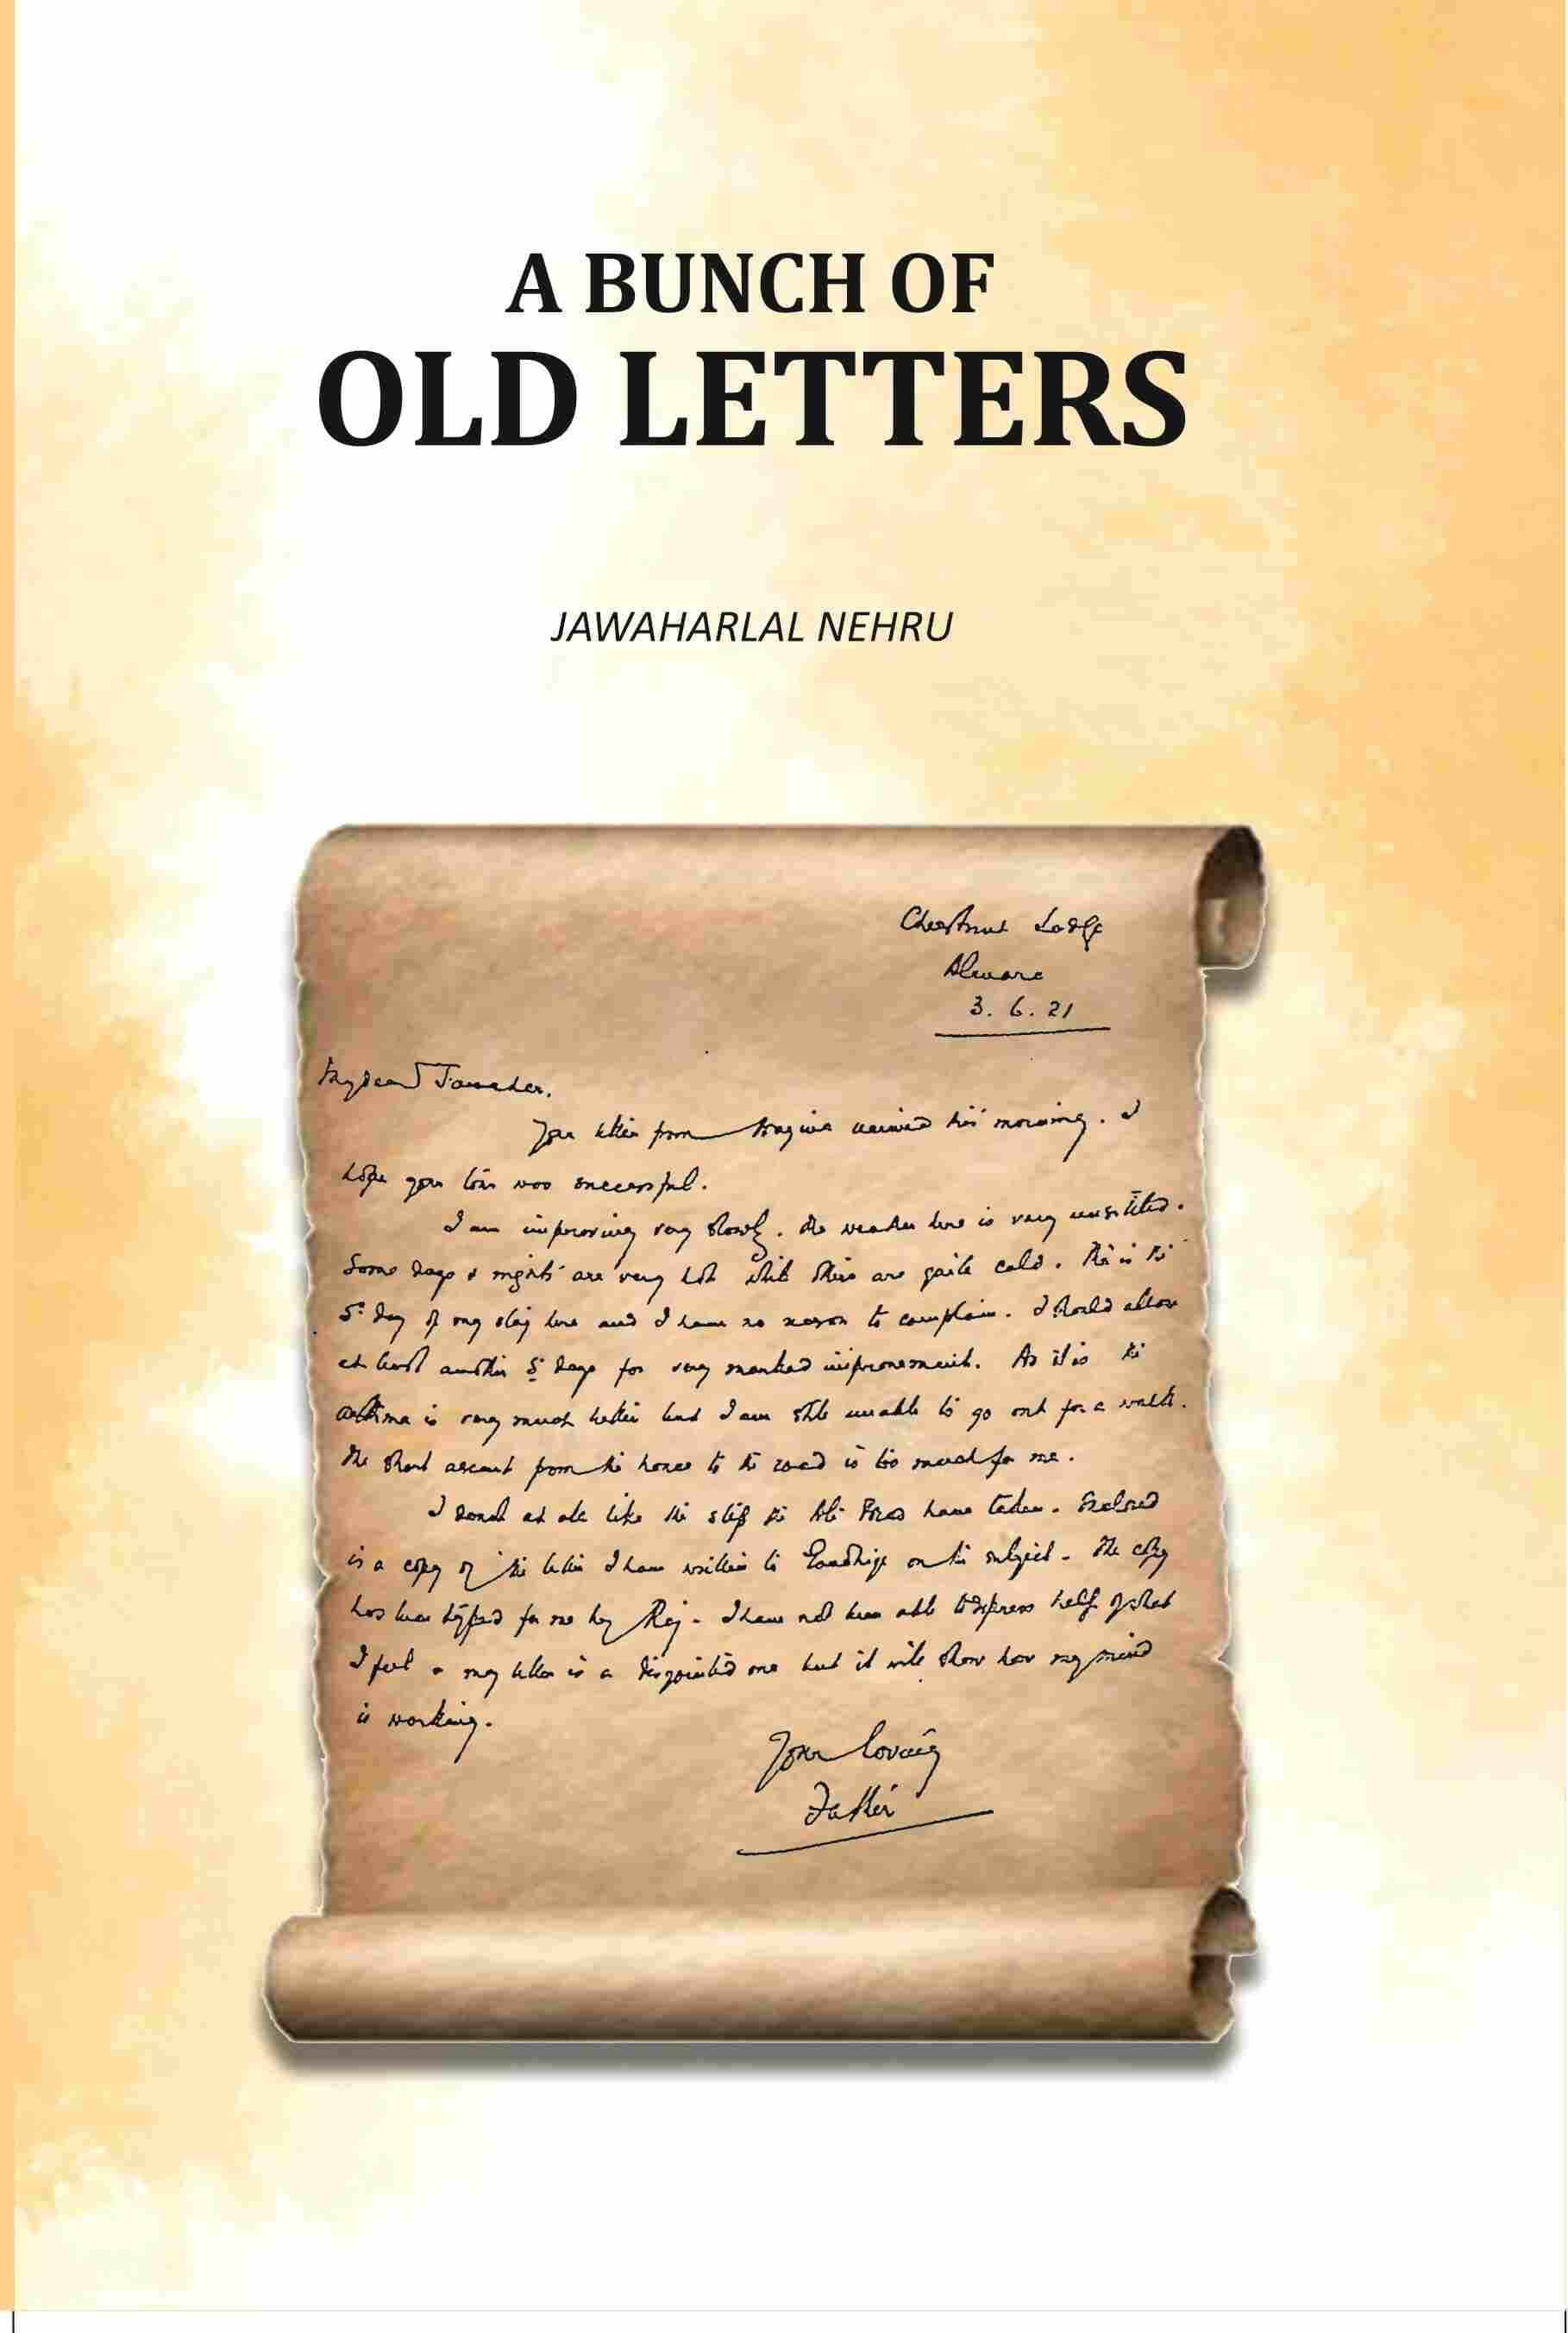 A BUNCH OF
OLD LETTERS
JAWAHARLAL NEHRU
Chestnut Lodge
Almora
3. 6. 21
My dear Jawahar.
Your letter from received this morning. I
hope your tour was successful.
I am improving very slowly. The weather here is very unsettled.
Some days & nights are very hot while others are quite cold. This is the
5th day of my stay here and I have no reason to complain. I should allow
at least another 5 days for very marked improvement. As it is the
asthma is very much better but I am still unable to go out for a walk.
The short ascent from the house to the road is too much for me.
I do not at all like the step the Ali Bros have taken. Enclosed
is a copy of the letter I have written to Gandhiji on the subject. The copy
has been typed for me by Raj. I have not been able to express half of what
I feel & my letter is a disjointed one but it will show how my mind
is working.
Your loving
Father